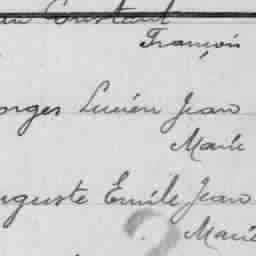 Constant
François
orges Lucien Jean
Marie
uguste Emile Jean
Marie